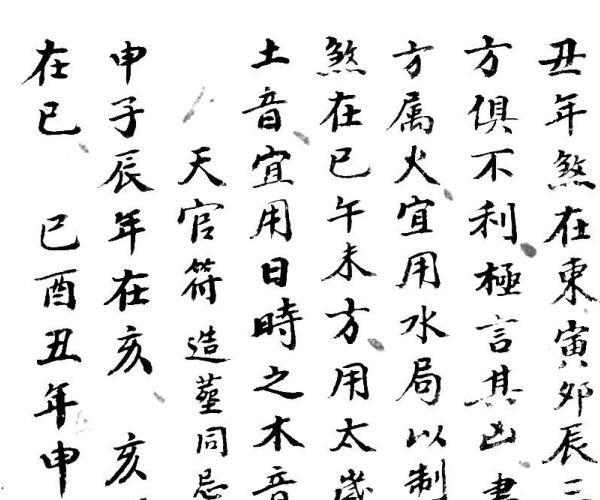 丑年煞在東寅夘辰三
方俱不利極言其凶書
方属火宜用水局以制
煞在巳午未方用太歲
土音宜用日時之木音
天官符造塟同忌
申子辰年在亥 亥
在巳 巳酉丑年申